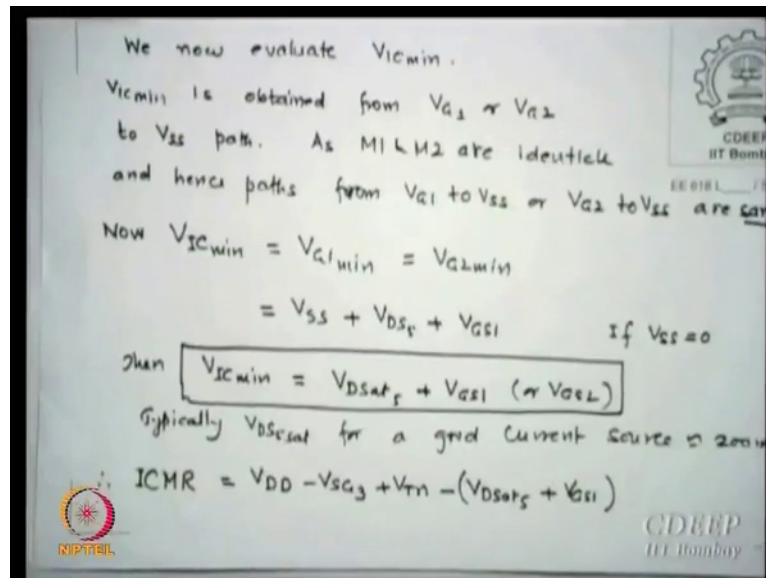 We now evaluate VICmin.
VICmin is obtained from VG1 or VG2
to VSS path. As M1 & M2 are identicle
and hence paths from VG1 to VSS or VG2 to VSS are sam
Now VICmin = VG1min = VG2min
= VSS + VDS5 + VGS1 If VSS = 0
Then VICmin = VDSat5 + VGS1 (or VGS2)
Typically VDS5sat for a good current source = 200m
∴ ICMR = VDD - VSG3 + VTn - (VDSat5 + VGS1)
CDEEP
IIT Bomb
EE 618 L
NPTEL
CDEEP
IIT Bombay